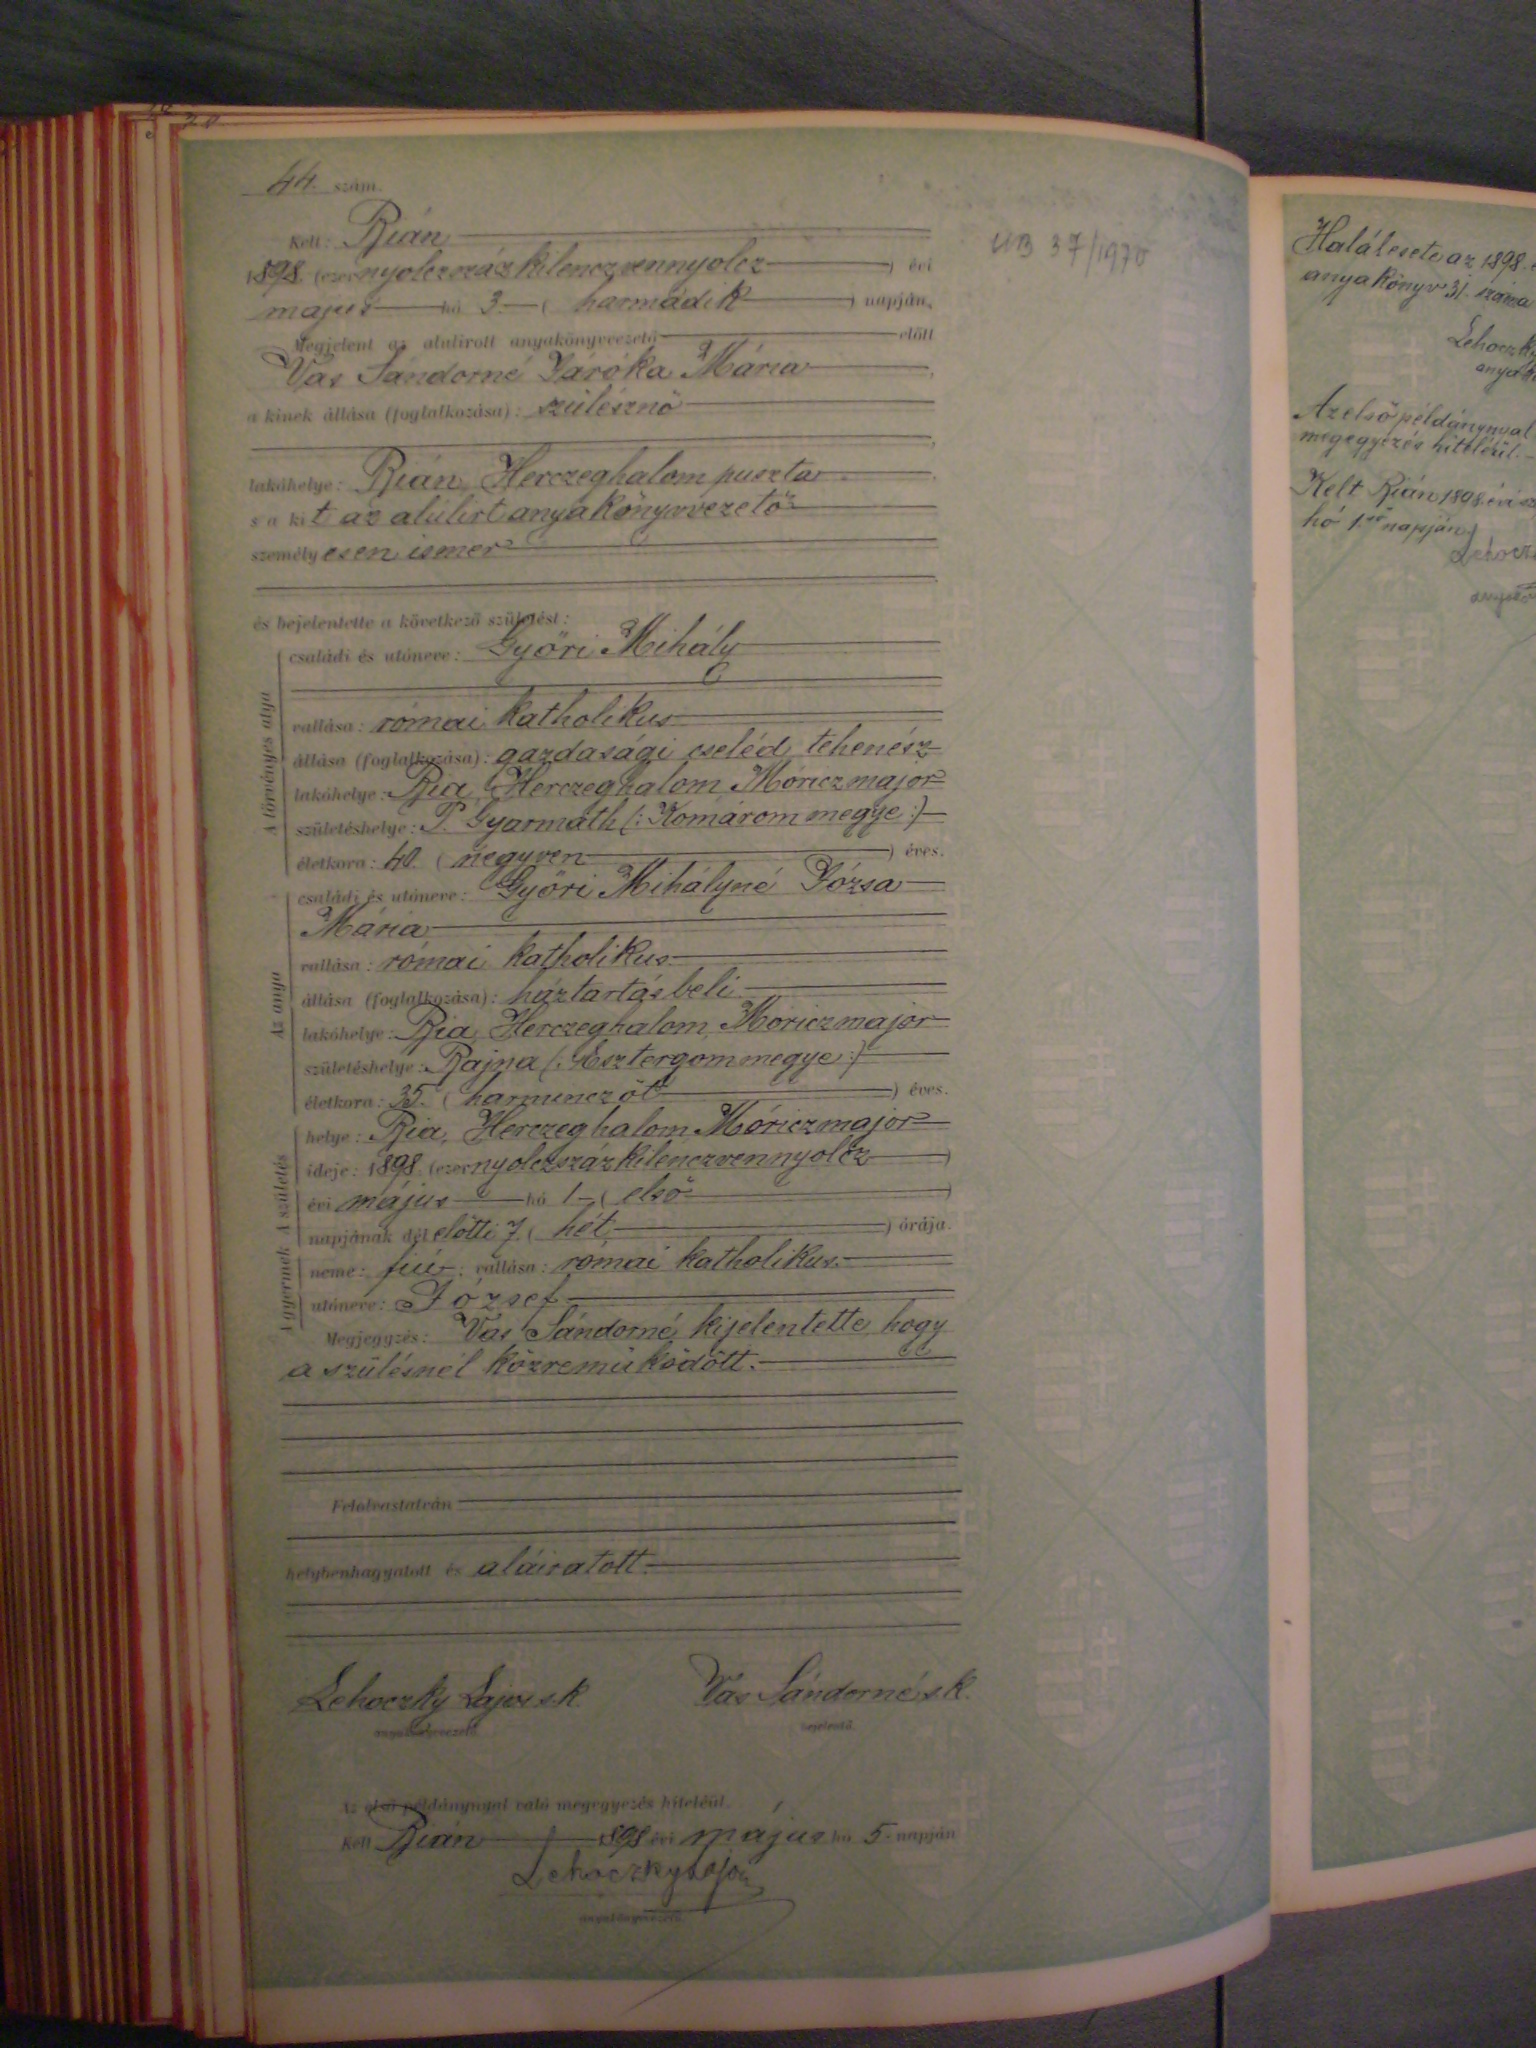 44. szám.
Kelt: Bián
1898. (ezernyolczszázkilenczvennyolcz) évi
május hó 3. (harmadik) napján,
Megjelent az alulirott anyakönyvvezető előtt
Vas Sándorné Járóka Mária,
a kinek állása (foglalkozása): szülésznő
lakóhelye: Bián, Herczeghalom puszta
s a kit az alulirt anyakönyvvezető
személyesen ismer
és bejelentette a következő születést:
A törvényes atya
családi és utóneve: Győri Mihály
vallása: római katholikus
állása (foglalkozása): gazdasági cseléd, tehenész
lakóhelye: Bia, Herczeghalom Móriczmajor
születéshelye: P. Gyarmath (: Komárom megye :)
életkora: 40. (negyven) éves.
Az anya
családi és utóneve: Győri Mihályné Józsa
Mária
vallása: római katholikus
állása (foglalkozása): háztartásbeli
lakóhelye: Bia, Herczeghalom, Móriczmajor
születéshelye: Bajna (: Esztergommegye :)
életkora: 35. (harmincz öt) éves.
A születés
helye: Bia, Herczeghalom Móriczmajor
ideje: 1898. (ezernyolczszázkilenczvennyolcz)
évi május hó 1 (első)
napjának dél előtti 7. (hét) órája.
A gyermek
neme: fiú; vallása: római katholikus.
utóneve: József
Megjegyzés: Vas Sándorné kijelentette, hogy
a szülésnél közreműködött.
Felolvastatván
helybenhagyatott és aláiratott.
Lehoczky Lajos s.k. Vas Sándorné s.k.
anyakönyvvezető. bejelentő.
Az első példánynyal való megegyezés hiteléül.
Kelt Bián 1898 évi május hó 5. napján
Lehoczky Lajos
anyakönyvvezető.
UB 37/1970
Halálesete az 1898.
anyakönyv 31. száma
Lehoczky
Az első példánynyal
megegyezés hiteléül.
Kelt Bián 1898 évi
hó 1. napján